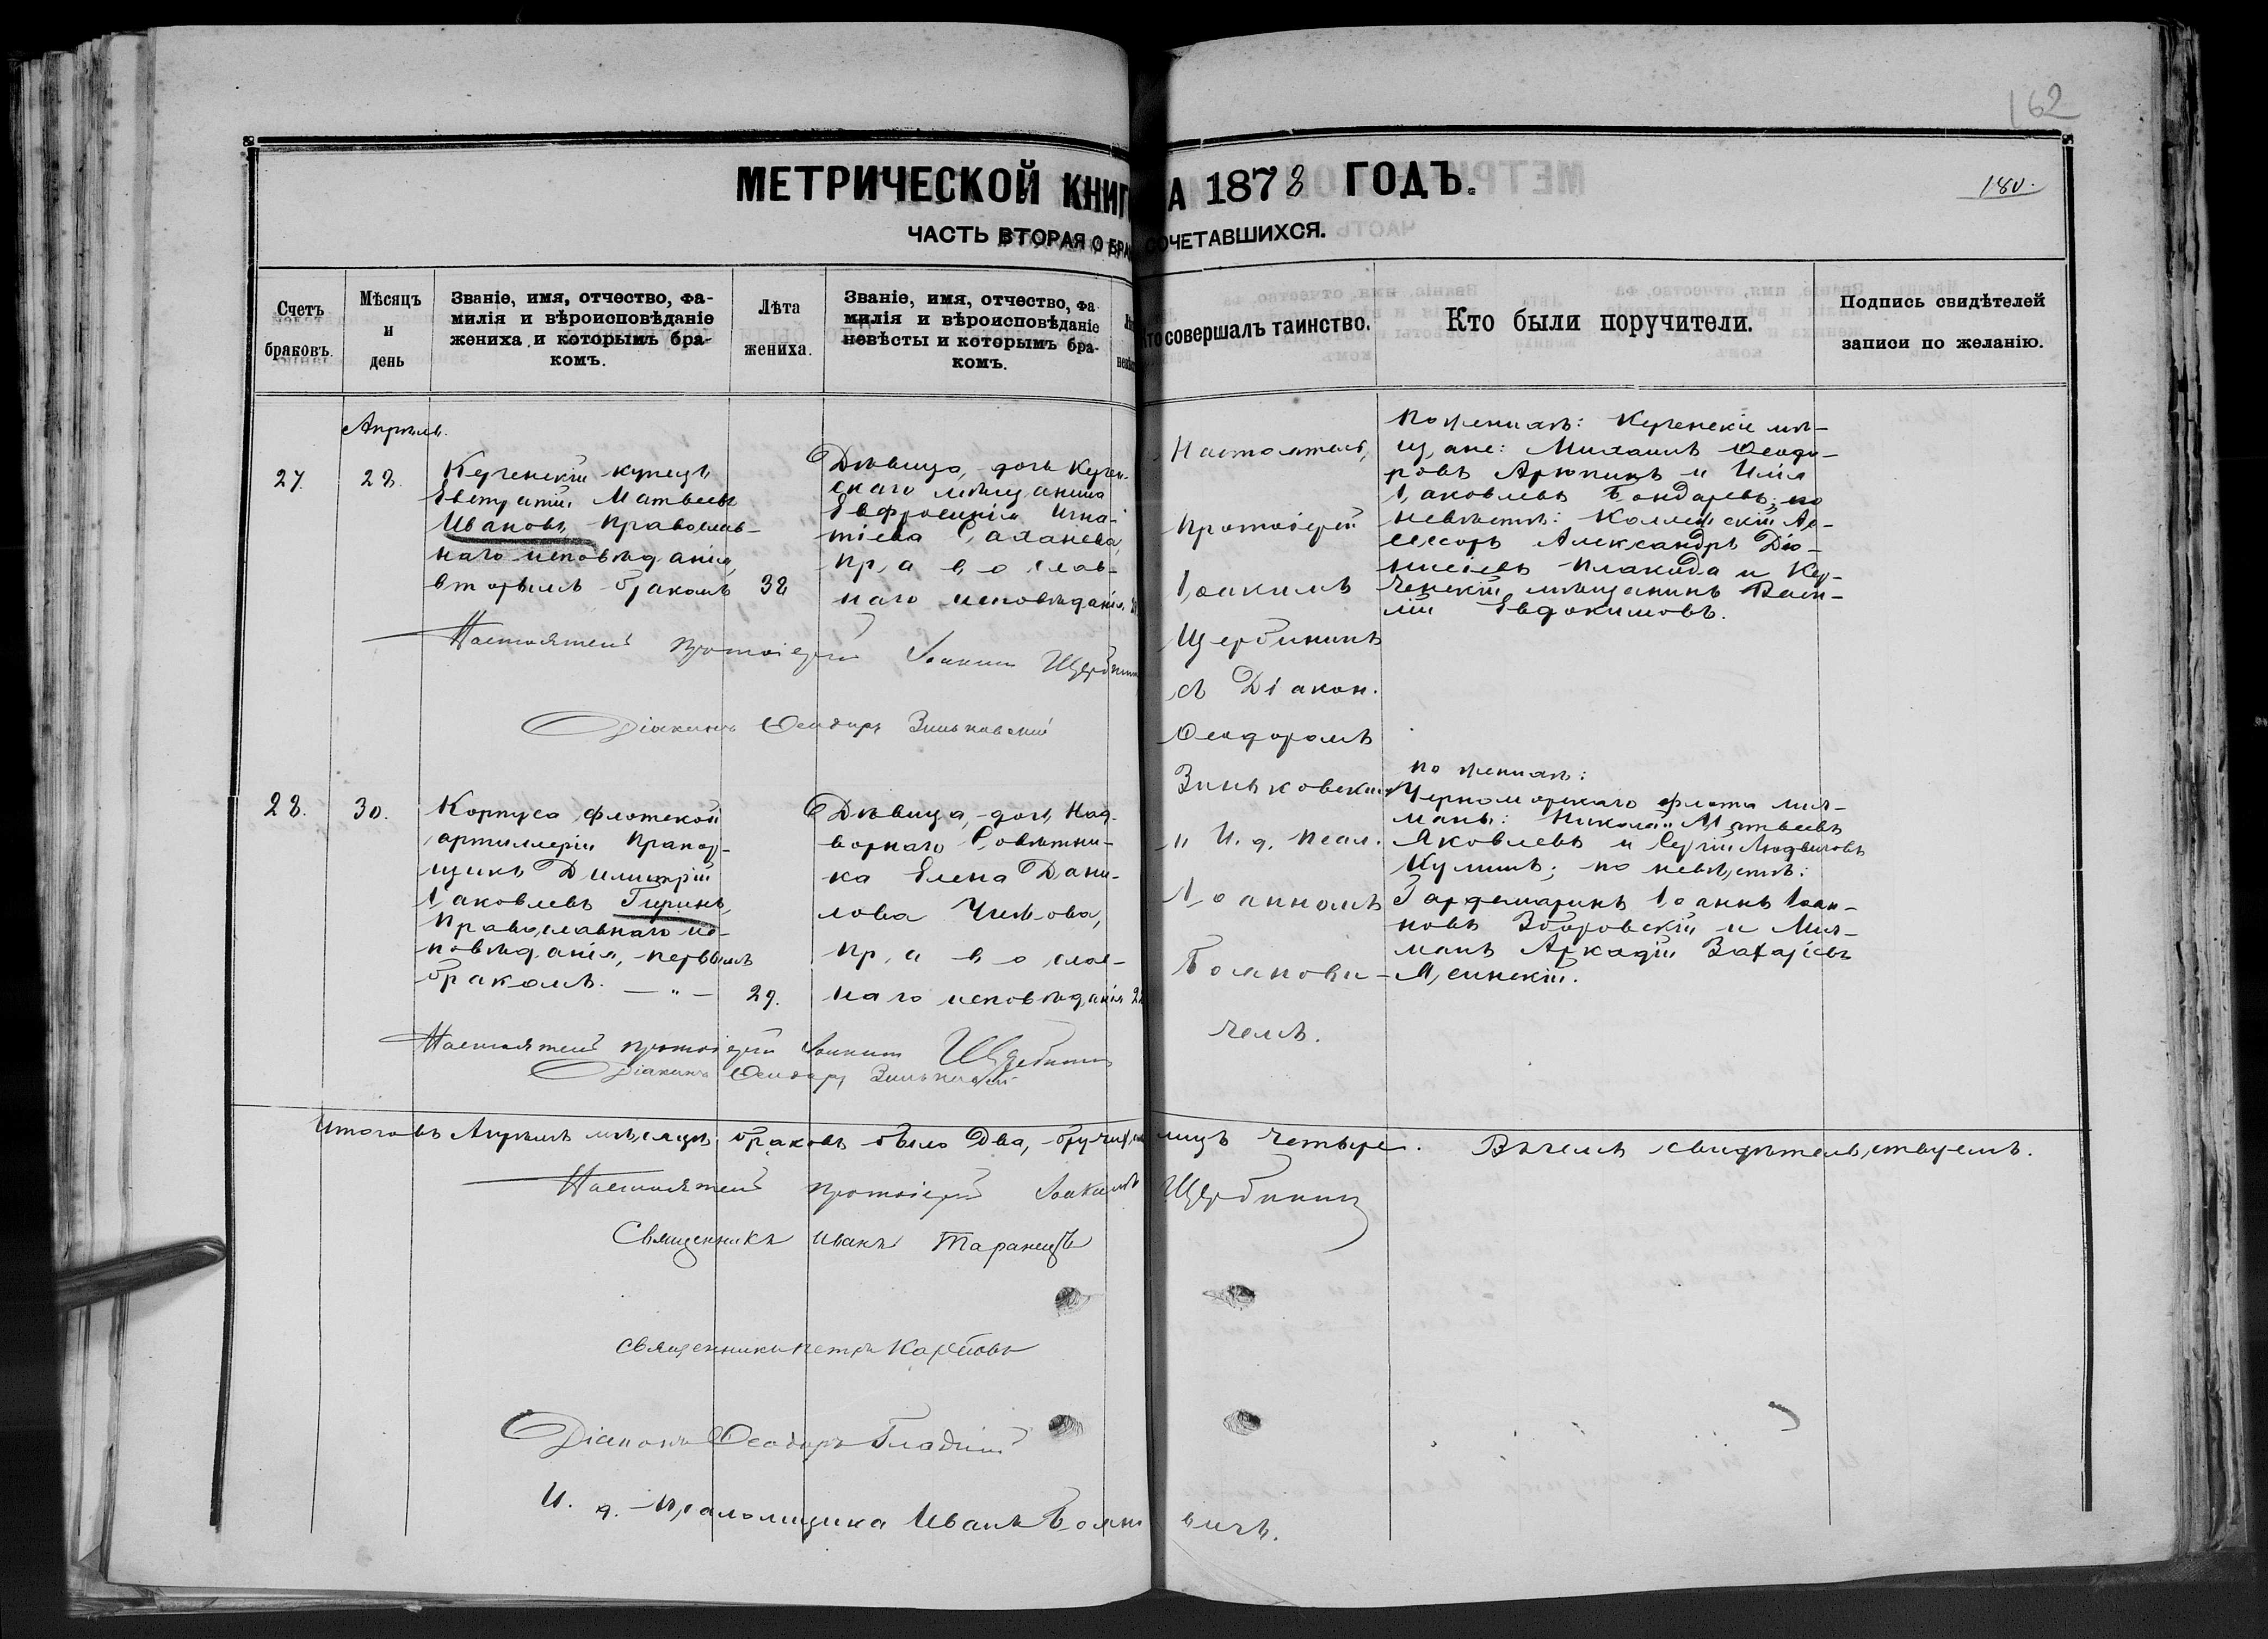 162
МЕТРИЧЕСКОЙ КНИГ А 1878 ГОДЪ.
180.
ЧАСТЬ ВТОРАЯ О БРА СОЧЕТАВШИХСЯ.
Счетъ браковъ.
Мѣсяцъ и день
Званіе, имя, отчество, фа-
милія и вѣроисповѣданіе
жениха и которымъ бра-
комъ.
Лѣта жениха.
Званіе, имя, отчество, фа-
милія и вѣроисповѣданіе
невѣсты и которымъ бра-
комъ.
Кто совершалъ таинство.
Кто были поручители.
Подпись свидѣтелей
записи по желанію.
Апрѣль.
27.
28.
Керченскій купецъ
Евстратій Матвеевъ
Ивановъ, православ-
наго исповѣданія,
вторымъ бракомъ
38
Дѣвица, дочь Керчен-
скаго мѣщанина
Евфросинія Игна-
тіева Саханева,
православ-
наго исповѣданія,
Настоятель
Протоіерей
Іоакимъ
Щербининъ
съ Діакон.
Ѳеодоромъ
Зиньковским
и И. д. псал.
Іоанномъ
Боянови-
чемъ.
по женихѣ: Керченскіе мѣ-
щане: Михаилъ Ѳеодо-
ровъ Арюпинъ и Илія
Іаковлевъ Бондаревъ; по
невѣстѣ: Коллежскій Ас-
сесоръ Александръ Діо-
нисіевъ Плакида и Кер-
ченскій мѣщанинъ Васи-
лій Евдокимовъ.
Настоятель протоіерей Іоакимъ Щербинин
Діаконъ Ѳеодоръ Зиньковскій
28.
30.
Корпуса флотской
артиллеріи Прапор-
щикъ Димитрій
Іаковлевъ Гиринъ,
Православнаго ис-
повѣданія, первымъ
бракомъ. — „ —
29.
Дѣвица, дочь Над-
ворнаго Совѣтни-
ка Елена Дани-
лова Чижова,
православ-
наго исповѣданія
по женихѣ:
Черноморскаго флота мич-
маны: Николай Матвеевъ
Яковлевъ и Сергій Людвиговъ
Кулишъ; по невѣстѣ:
Гардемаринъ Іоаннъ Іоан-
новъ Зборовскій и Мич-
манъ Аркадій Захаріевъ
Ясинскій.
Настоятель протоіерей Іоакимъ Щербининъ
Діаконъ Ѳеодоръ Зиньковскій
Итого въ Апрѣлѣ мѣсяцѣ браковъ было Два, лицъ четыре. В чемъ свидѣтельствуемъ.
Настоятель протоіерей Іоакимъ Щербининъ
Священникъ Иванъ Таранецъ
Священникъ Петръ Карповъ
Діаконъ Ѳеодоръ Гладкій
И. д. Псаломщика Иванъ Бояновичъ.